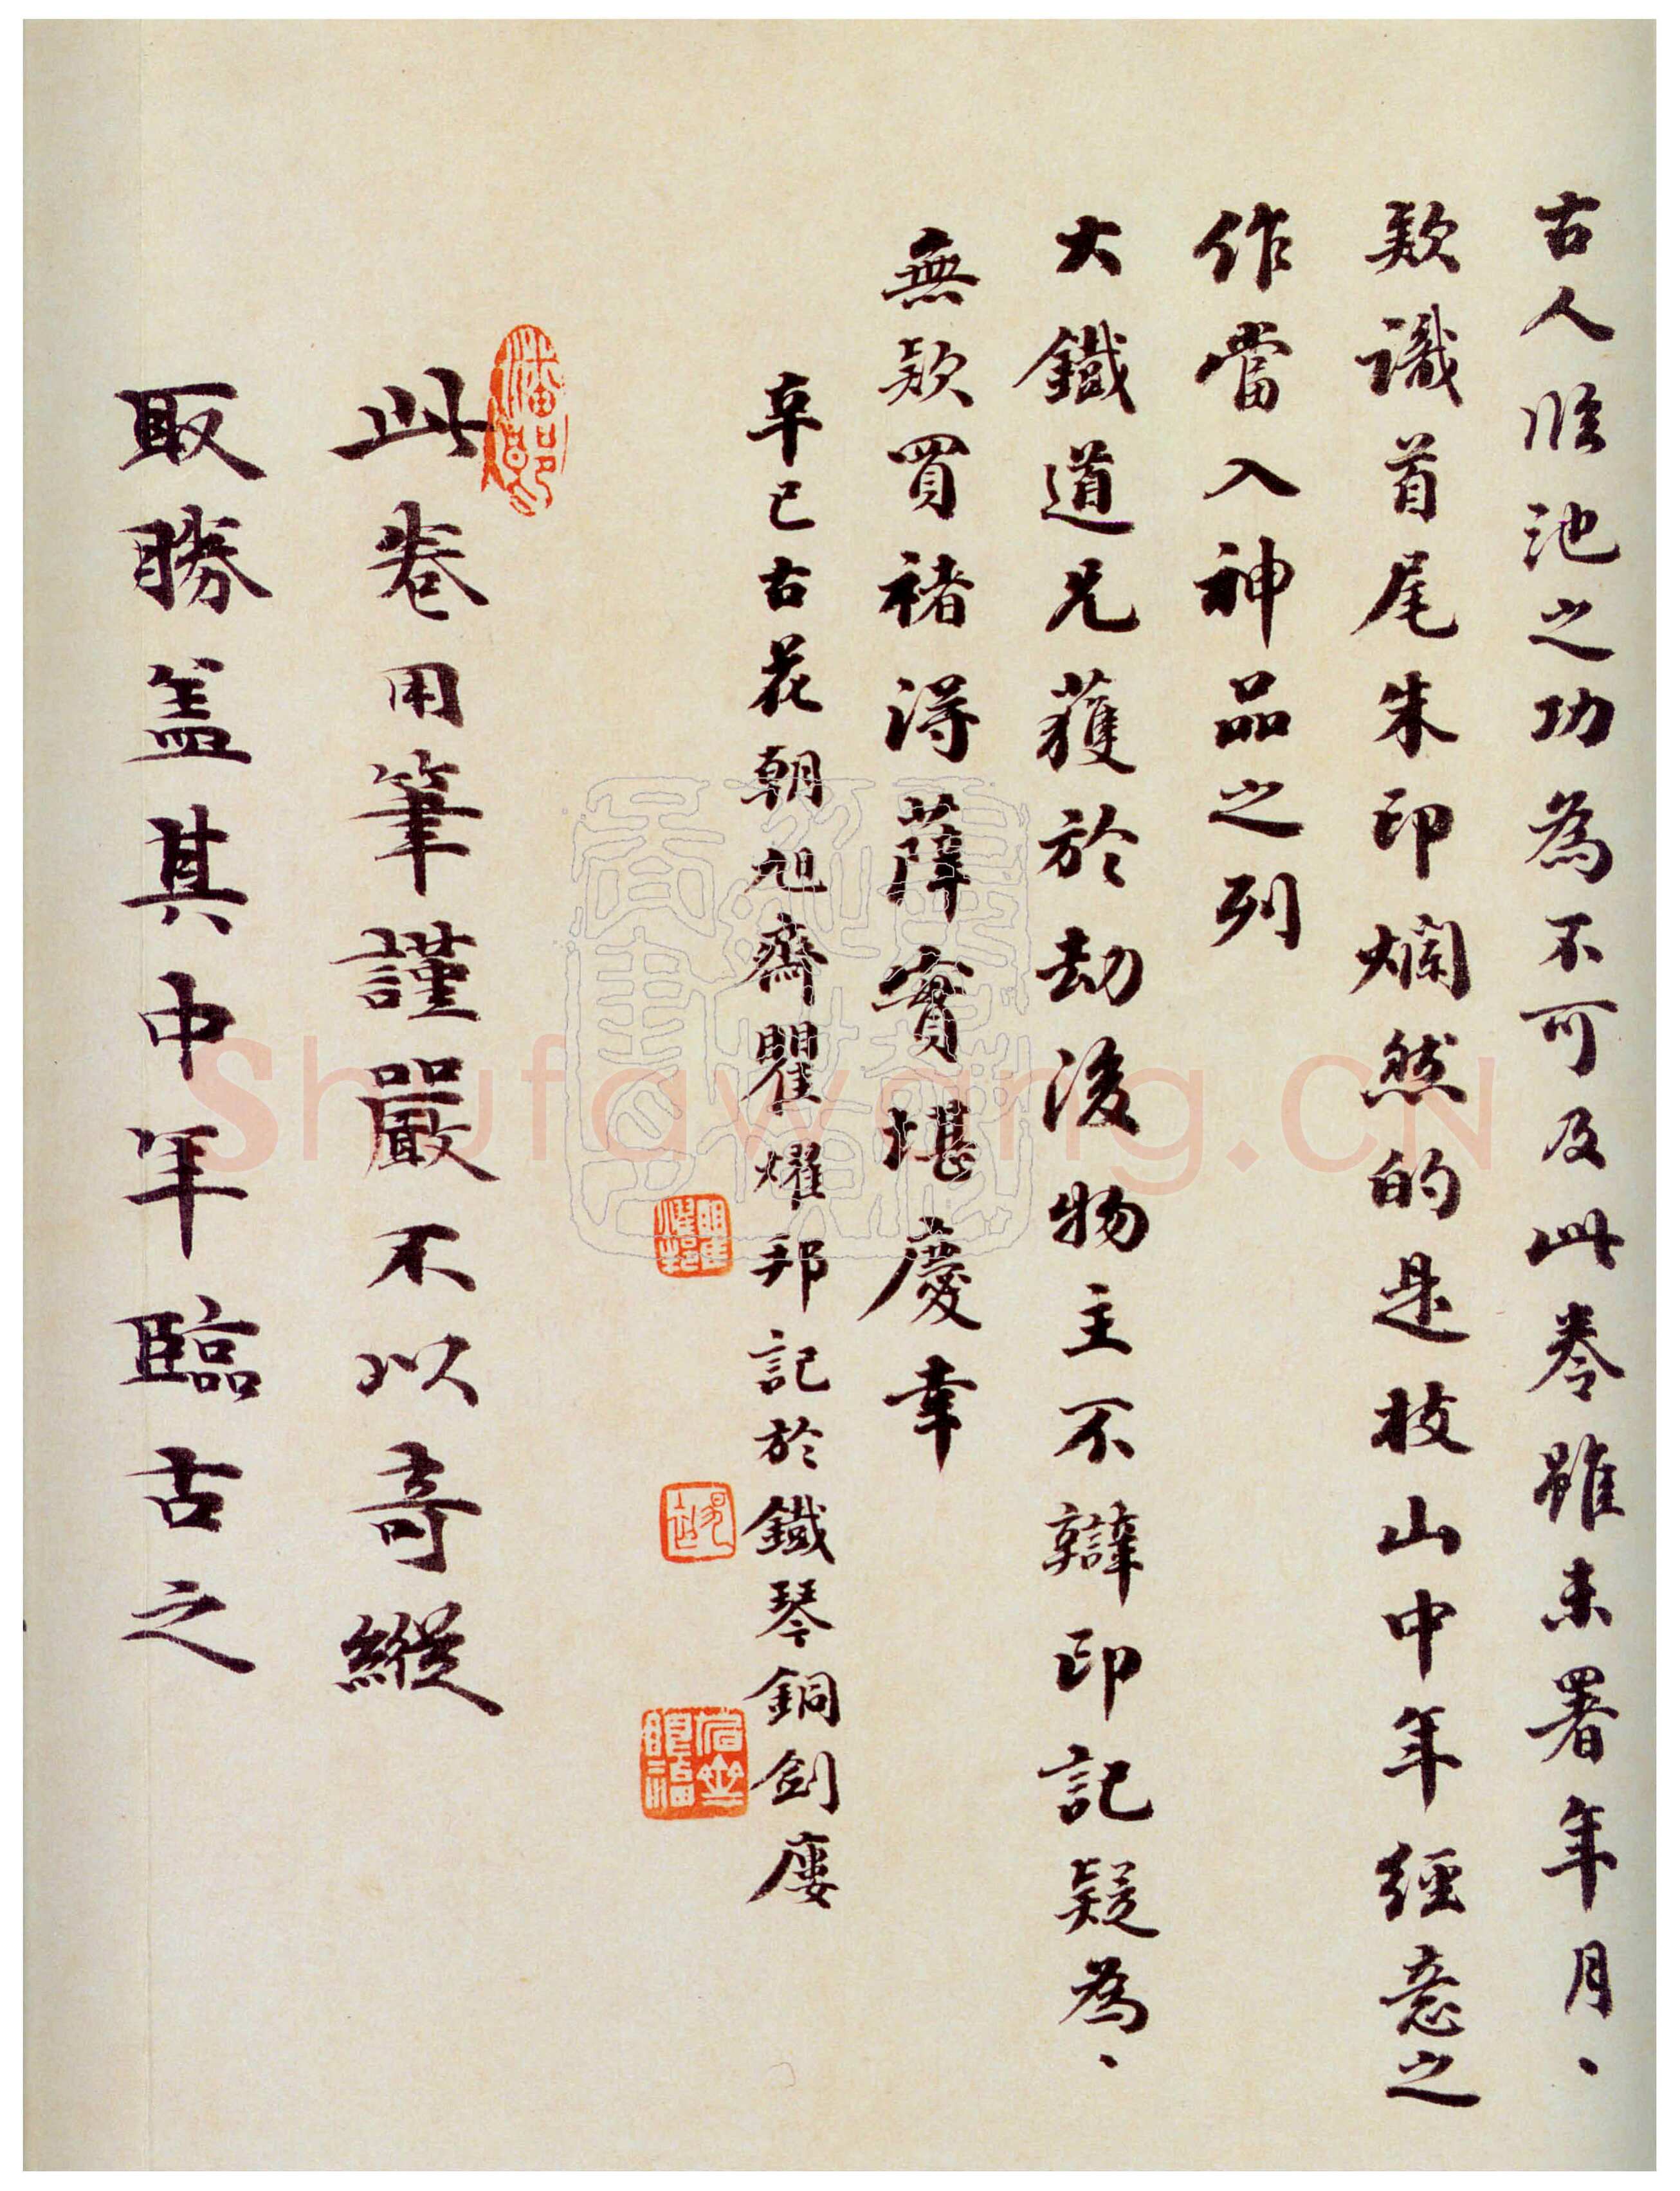 古人临池之功為不可及此卷雖未署年月、
欵識首尾朱印爛然的是枝山中年經意之
作當入神品之列
大鐵道兄獲於劫後物主不辯印記疑為、
無欵買褚得薛實堪慶幸
辛巳古花朝旭齋瞿燿邦記於鐵琴銅劍廔
此卷用筆謹嚴不以奇縱
取勝盖其中年臨古之
Shufawang.CN